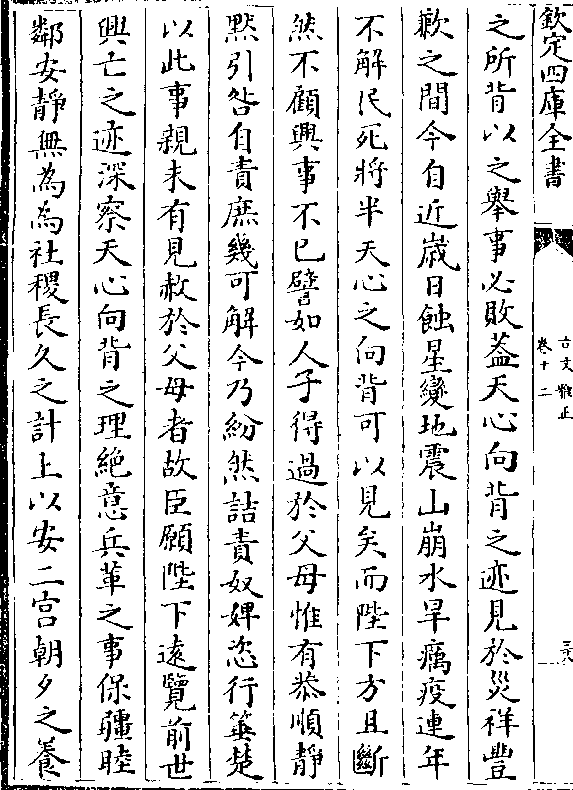 欽定四庫全書
古文雅正
卷十二
之所背以之舉事必敗葢天心向背之迹見於災祥豐
歉之間今自近嵗日蝕星變地震山崩水旱癘疫連年
不解民死將半天心之向背可以見矣而陛下方且斷
然不顧興事不已譬如人子得過於父母惟有恭順靜
黙引咎自責庶幾可解今乃紛然詰責奴婢恣行箠楚
以此事親未有見赦於父母者故臣願陛下逺覽前世
興亡之迹深察天心向背之理絶意兵革之事保疆睦
鄰安靜無為為社稷長久之計上以安二宫朝夕之養